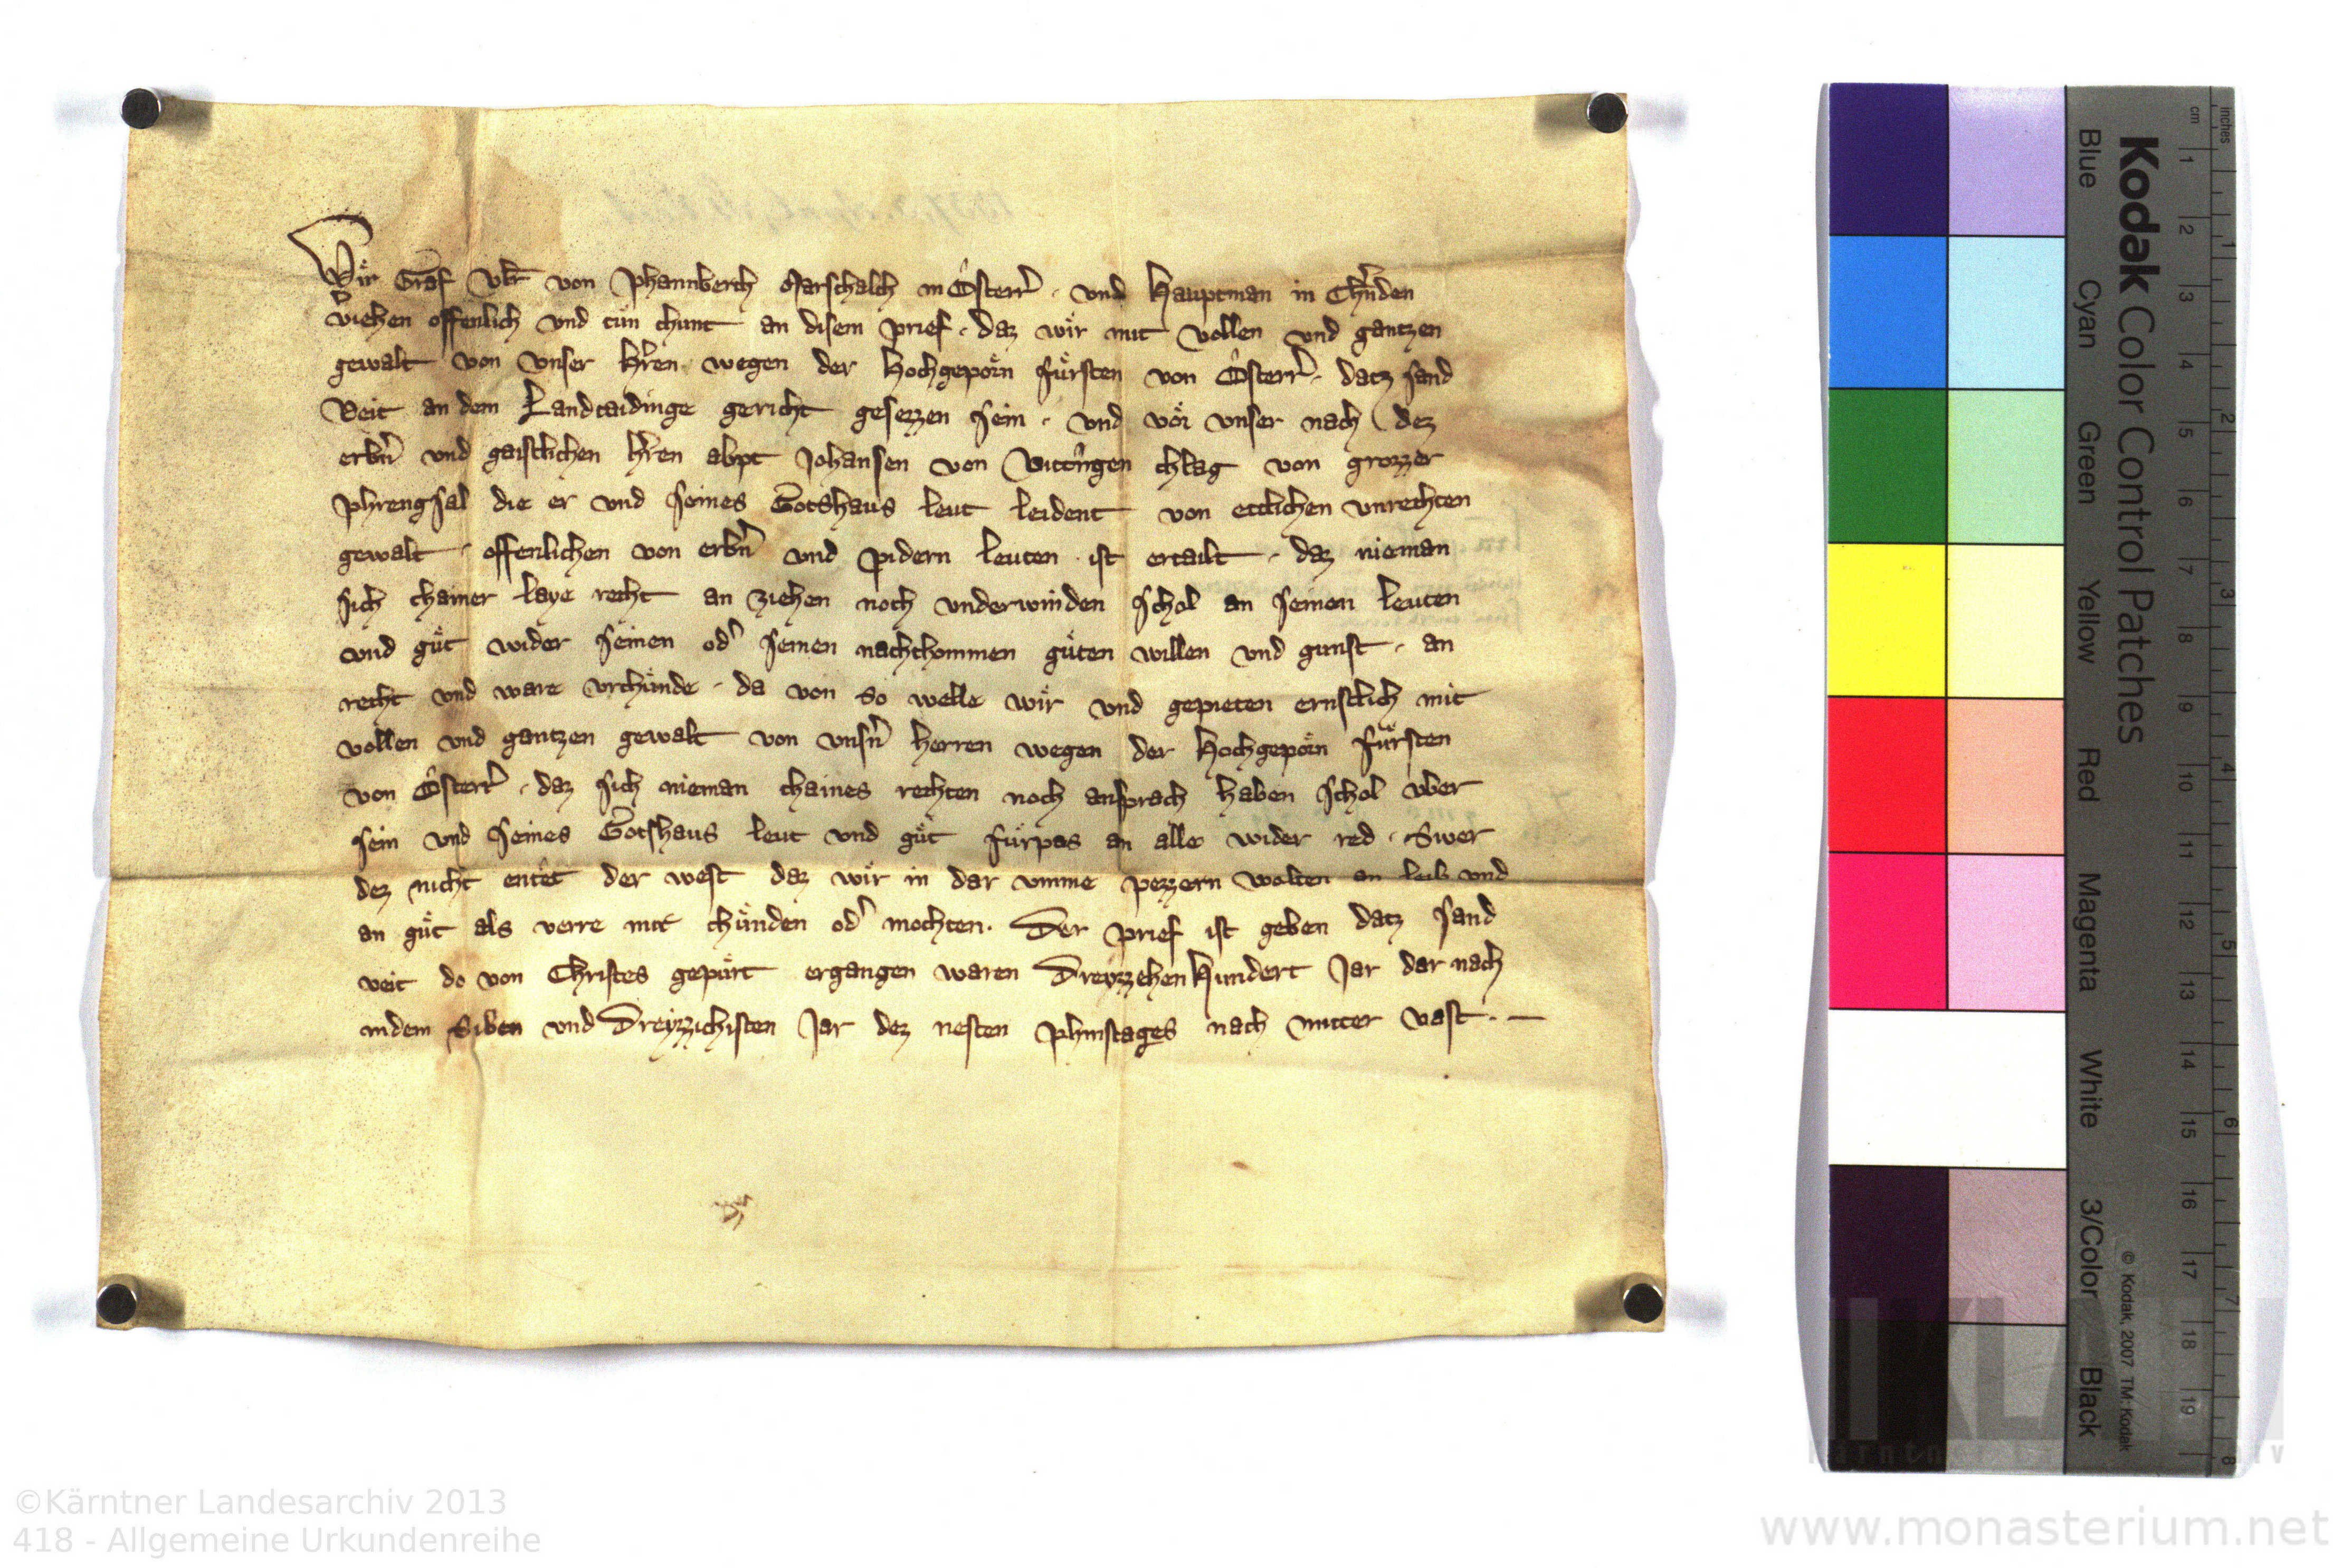 Wir Graf Vlr̄ von Phannberch Marschalch in Ôsterr̄ · vnd Hauptman in Chr̄nden
v̄iehen offenlich vnd tůn chunt an disem prief · daz wir mit vollen vnd gantzen
gewalt von vnser hr̄ren wegen der Hochgeporn fůrsten von Ôsterr̄ · datz sand
Veit an dem Landtaidinge gericht gesezzen sein · vnd vor vnser nach dez
erbn̄ vnd gaistlichen hr̄ren abpt Johansen von Victringen chlag von grozzer
phrengsal die er vnd seines Gotshaus leut leident von etlichen vnrechten
gewalt · offenlichen von erbn̄ vnd pidern leuten · ist ertailt · daz nieman
sich chainer laye recht an ziehen noch vnderwinden schol an seinen leuten
vnd gůt wider seinen od̄ seinen nachchommen gůten willen vnd gunst · an
recht vnd ware vrchůnde · da von so welle wir vnd gepieten ernstlich mit
vollen vnd gantzen gewalt von vnsn̄ herren wegen der Hochgeporn fůrsten
von Ôsterr̄ · daz sich nieman chaines rechten noch ansprach haben schol vber
sein vnd seines Gotshaus leut vnd gůt fůrpas an alle wider red · Swer
dez nicht entêt der west daz wir in dar vmme pezzern wolten an leib vnd
an gůt als verre wir chůnden od̄ mochten · Der prief ist geben datz sand
veit do von Christes gepůrt ergangen waren Dreyzzehen Hundert Jar dar nach
in dem Siben vnd Dreyzzichisten Jar dez nesten phinstages nach mitter vast · —
Kodak Color Control Patches
Blue Cyan Green Yellow Red Magenta White 3/Color Black
© Kodak, 2007 TM: Kodak
inches 1 2 3 4 5 6 7 8
cm 1 2 3 4 5 6 7 8 9 10 11 12 13 14 15 16 17 18 19
©Kärntner Landesarchiv 2013
418 - Allgemeine Urkundenreihe
www.monasterium.net